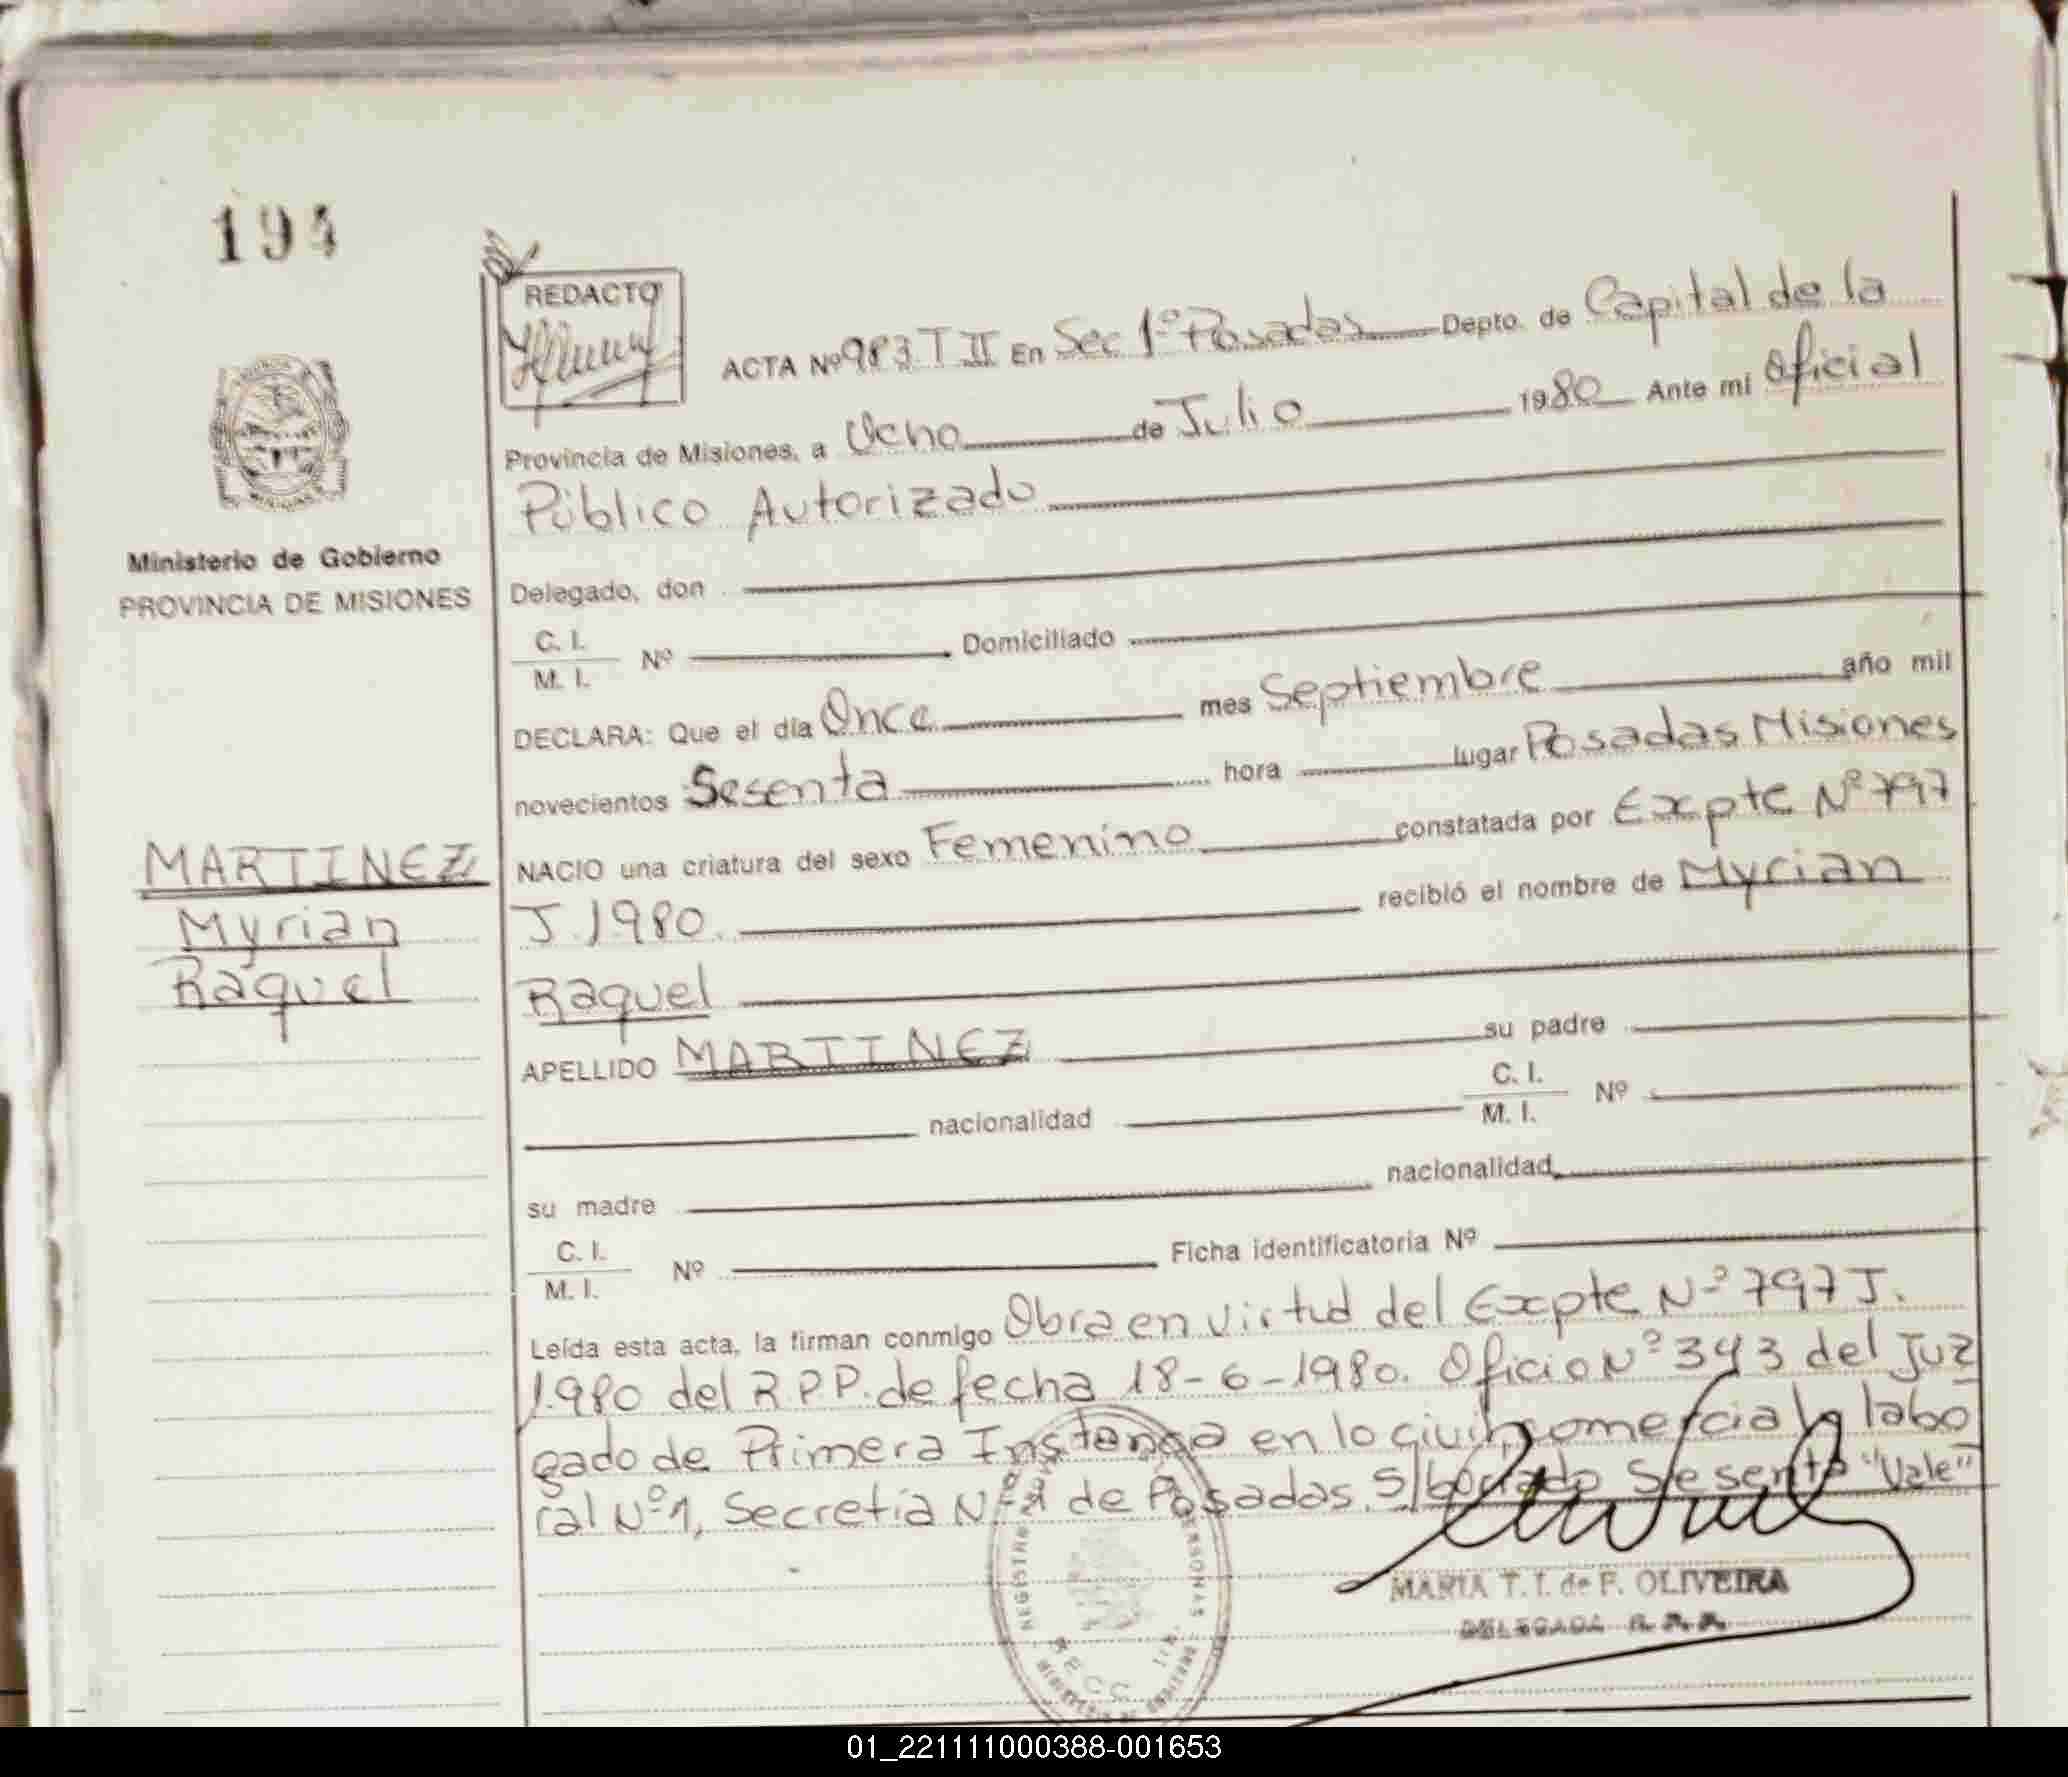 194
REDACTO
ACTA Nº 983 T II En Sec 1º Posadas Depto. de Capital de la
Provincia de Misiones, a Ocho de Julio 1980 Ante mi Oficial
Público Autorizado
Ministerio de Gobierno
PROVINCIA DE MISIONES
Delegado, don
C. I.
M. I. Nº Domiciliado
DECLARA: Que el día Once mes Septiembre año mil
novecientos Sesenta hora lugar Posadas Misiones
NACIO una criatura del sexo Femenino constatada por Expte Nº 797
J. 1980. recibió el nombre de Myrian
Raquel
MARTINEZ
Myrian
Raquel
APELLIDO MARTINEZ su padre
nacionalidad C. I.
M. I. Nº
su madre nacionalidad
C. I.
M. I. Nº Ficha identificatoria Nº
Leída esta acta, la firman conmigo Obra en virtud del Expte Nº 797 J.
1980 del R.P.P. de fecha 18-6-1980. Oficio Nº 343 del Juz
gado de Primera Instancia en lo civil, comercial y labo
ral Nº 1, Secretia Nº de Posadas. S/borrado Sesenta "Vale"
MARIA T. I. de F. OLIVEIRA
DELEGADA R. P. P.
01_221111000388-001653